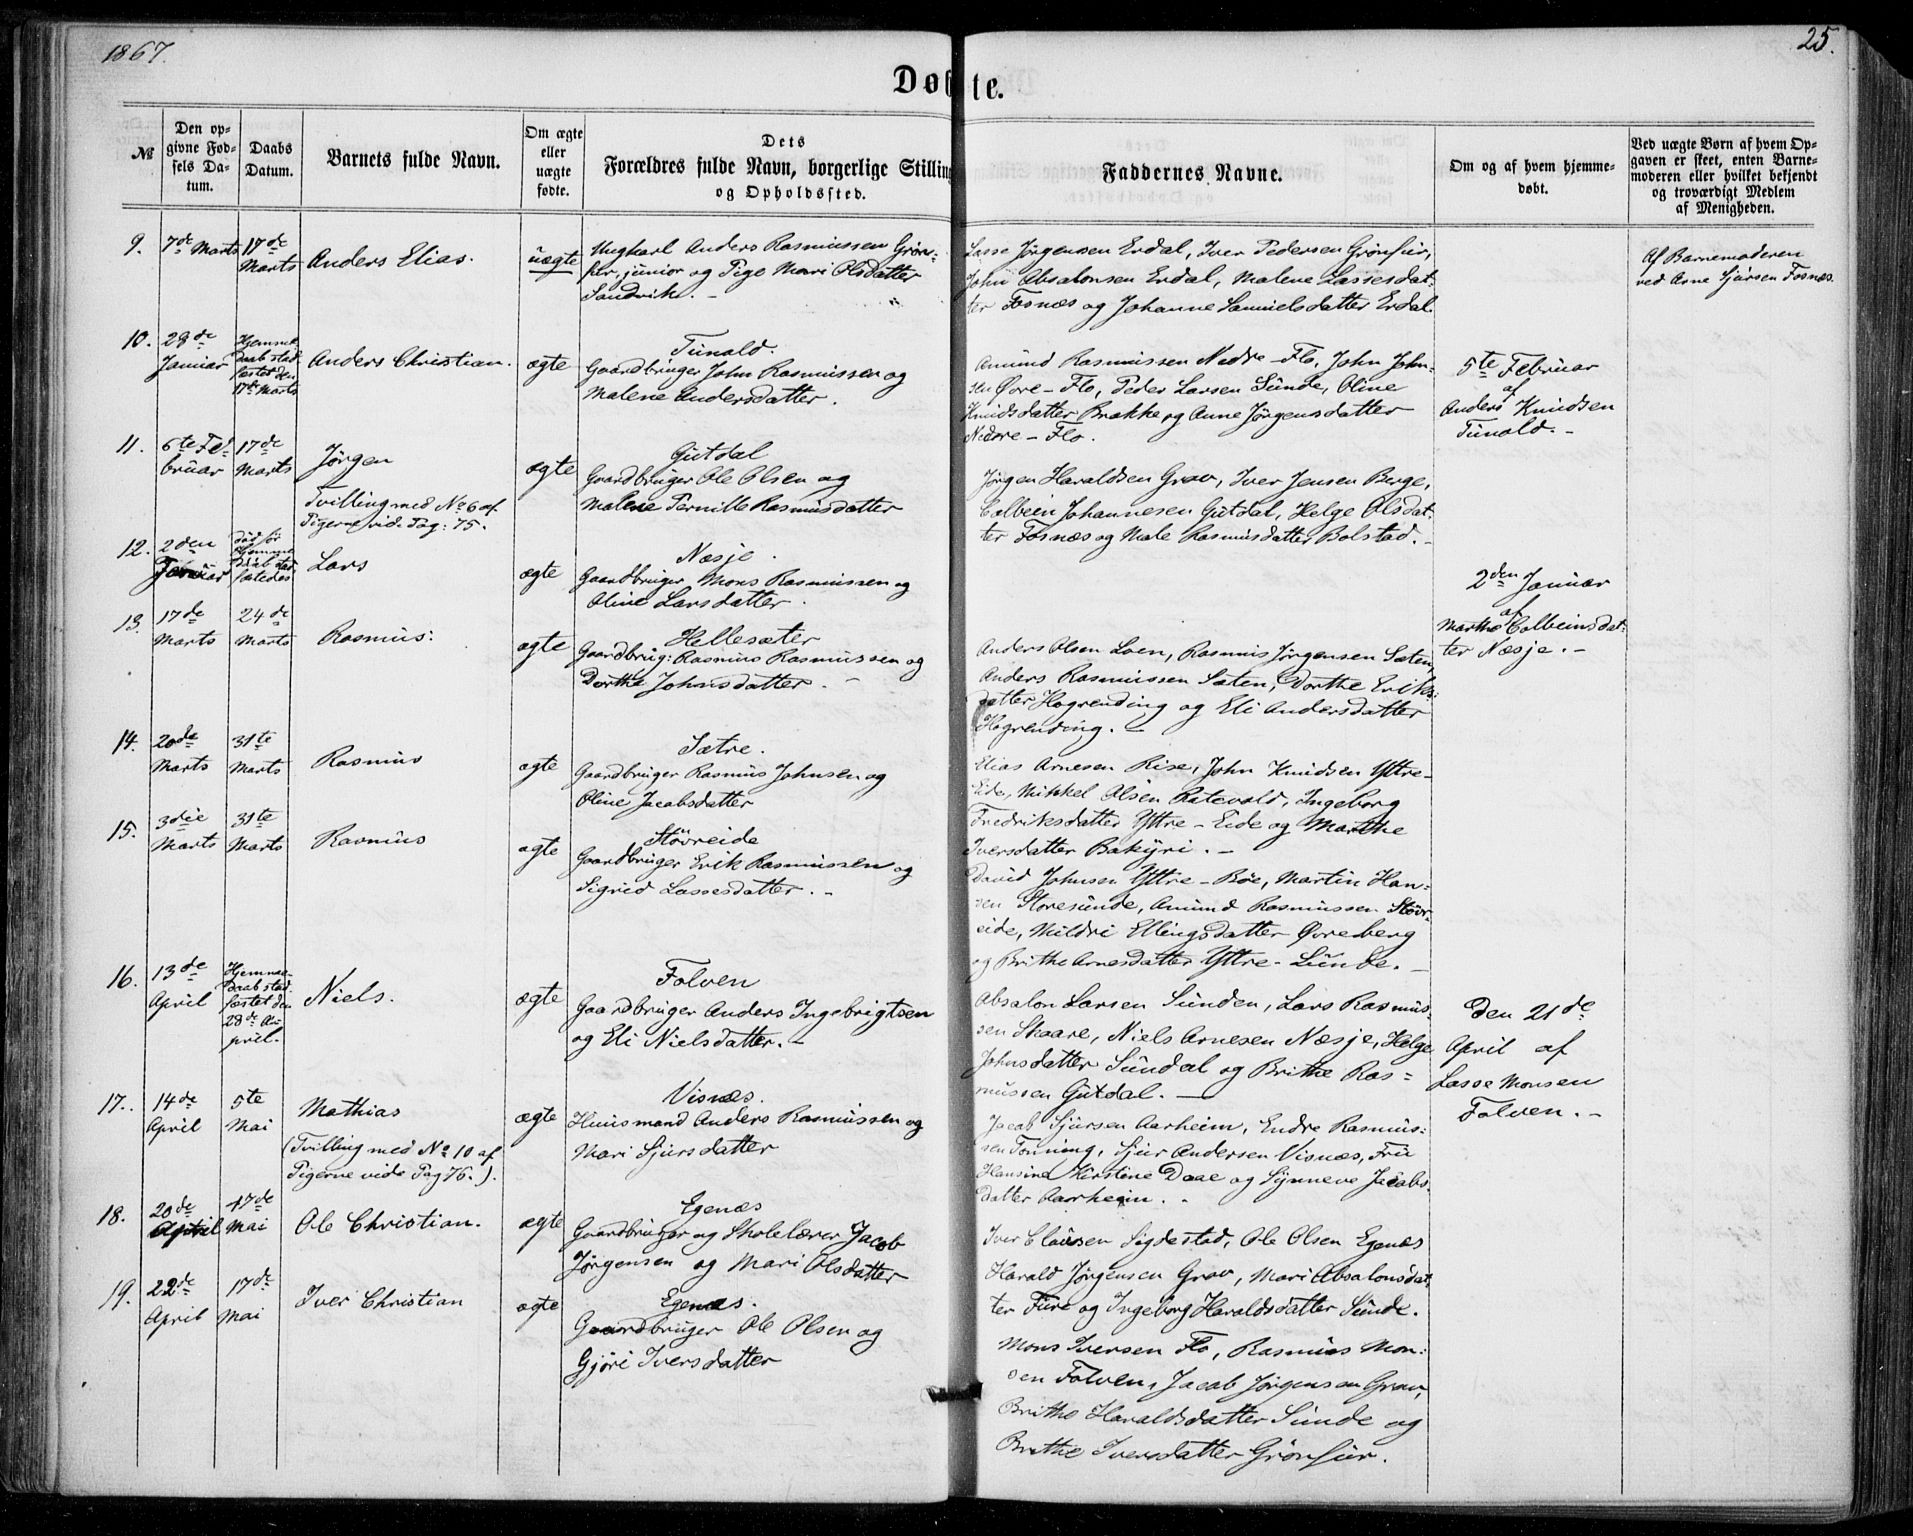 1867.
25.
Døbte.
№
Den op-
givne Fød-
sels Da-
tum.
Daabs
Datum.
Barnets fulde Navn.
Om ægte
eller
uægte
fødte.
Dets
Forældres fulde Navn, borgerlige Stilling
og Opholdssted.
Faddernes Navne.
Om og af hvem hjemme-
døbt.
Ved uægte Børn af hvem Op-
gaven er skeet, enten Barne-
moderen eller hvilket bekjendt
og troværdigt Medlem
af Menigheden.
9.
7de Marts
17de
Marts
Anders Elias.
uægte
Ungkarl Anders Rasmussen Grøns-
fur, junior og Pige Mari Olsdatter
Sandvik. -
Lasse Jørgensen Erdal, Iver Pedersen Grønfur,
John Absalonsen Erdal, Malene Lassesdat-
ter Fosnæs og Johanne Samuelsdatter Erdal.
Af Barnemoderen
ved Arne Sjursen Fosnæs.
10.
28de
Januar
Hjemme
daab stad-
fæstet den
17de Marts
Anders Christian.
ægte
Tunold.
Gaardbruger John Rasmussen og
Malene Andersdatter.
Amund Rasmussen Nedre-Flo, John John-
sen Øvre-Flo, Peder Larsen Sunde, Oline
Knudsdatter Brække og Anne Jørgensdatter
Nedre-Flo.
5te Februar
af
Anders Knudsen
Tunold. -
11.
6te Fe-
bruar
17de
Marts
Jørgen
Tvilling med No 6 af
Pigerne vid. Pag: 75.
ægte
Gutdal
Gaardbruger Ole Olsen og
Malene Pernille Rasmusdatter
Jørgen Haraldsen Grov, Iver Jensen Berge,
Colbein Johannesen Gutdal, Helge Olsdat-
ter Fosnæs og Male Rasmusdatter Bolstad. -
12.
2den
Januar
død før
Hjemme
daab stad-
fæstedes
Lars
ægte
Næsje.
Gaardbruger Mons Rasmussen og
Oline Larsdatter.
2den Januar
af
Marthe Colbeinsdat-
ter Næsje. -
13.
17de
Marts
24de
Marts
Rasmus:
ægte
Hellesæter
Gaardbrug: Rasmus Rasmussen og
Dorthe Johnsdatter. -
Anders Olsen Loen, Rasmus Jørgensen Sæten,
Anders Rasmussen Sæten, Dorthe Eriks-
datter Hogrending og Eli Andersdatter
Hogrending. -
14.
20de
Marts
31te
Marts
Rasmus
ægte
Sætre.
Gaardbruger Rasmus Johnsen og
Oline Jacobsdatter
Elias Arnesen Rise, John Knudsen Yttre-
Eide, Mikkel Olsen Ratevold, Ingeborg
Fredriksdatter Yttre-Eide og Marthe
Iversdatter Bakyri. -
15.
3die
Marts
31te
Marts
Rasmus
ægte
Støvreide
Gaardbruger Erik Rasmussen og
Sigrid Lassesdatter. -
David Johnsen Yttre-Bøe, Martin Han-
sen Storesunde, Amund Rasmussen Støvr-
eide, Mildri Ellingsdatter Øvreberg
og Brithe Arnesdatter Yttre-Lunde. -
16.
13de
April
Hjemme-
daab stad-
fæstet den
28de Ap-
pril.
Niels.
ægte
Folven
Gaardbruger Anders Ingebrigtsen
og Eli Nielsdatter. -
Absalon Larsen Sunden, Lars Rasmus-
sen Skaare, Niels Arnesen Næsje, Helge
Johnsdatter Sundal og Brithe Ras-
mussen Gutdal. -
Den 21de
April af
Lasse Monsen
Folven. -
17.
14de
April
5te
Mai
Mathias
(Tvilling med No 10 af
Pigerne vide Pag 76.).
ægte
Visnæs.
Huusmand Anders Rasmussen og
Mari Sjursdatter
Jacob Sjursen Aarheim, Endre Rasmus-
sen Tonning, Sjur Andersen Visnæs, Fru
Hansine Kirstine Daae og Synneve Jacobs-
datter Aarheim.
18.
20de
April
17de
Mai
Ole Christian.
ægte
Egenæs
Gaardbruger og Skolelærer Jacob
Jørgensen og Mari Olsdatter
Iver Clausen Sigdestad, Ole Olsen Egenæs
Harald Jørgensen Grov, Mari Absalonsdat-
ter Fure og Ingeborg Haraldsdatter Sunde.
19.
22de
April
17de
Mai
Iver Christian
ægte
Egenæs.
Gaardbruger Ole Olsen og
Gjøri Iversdatter
Mons Iversen Flo, Rasmus Mon-
sen Folven, Jacob Jørgensen Grov,
Brithe Haraldsdatter Sunde og
Brithe Iversdatter Grønfur.